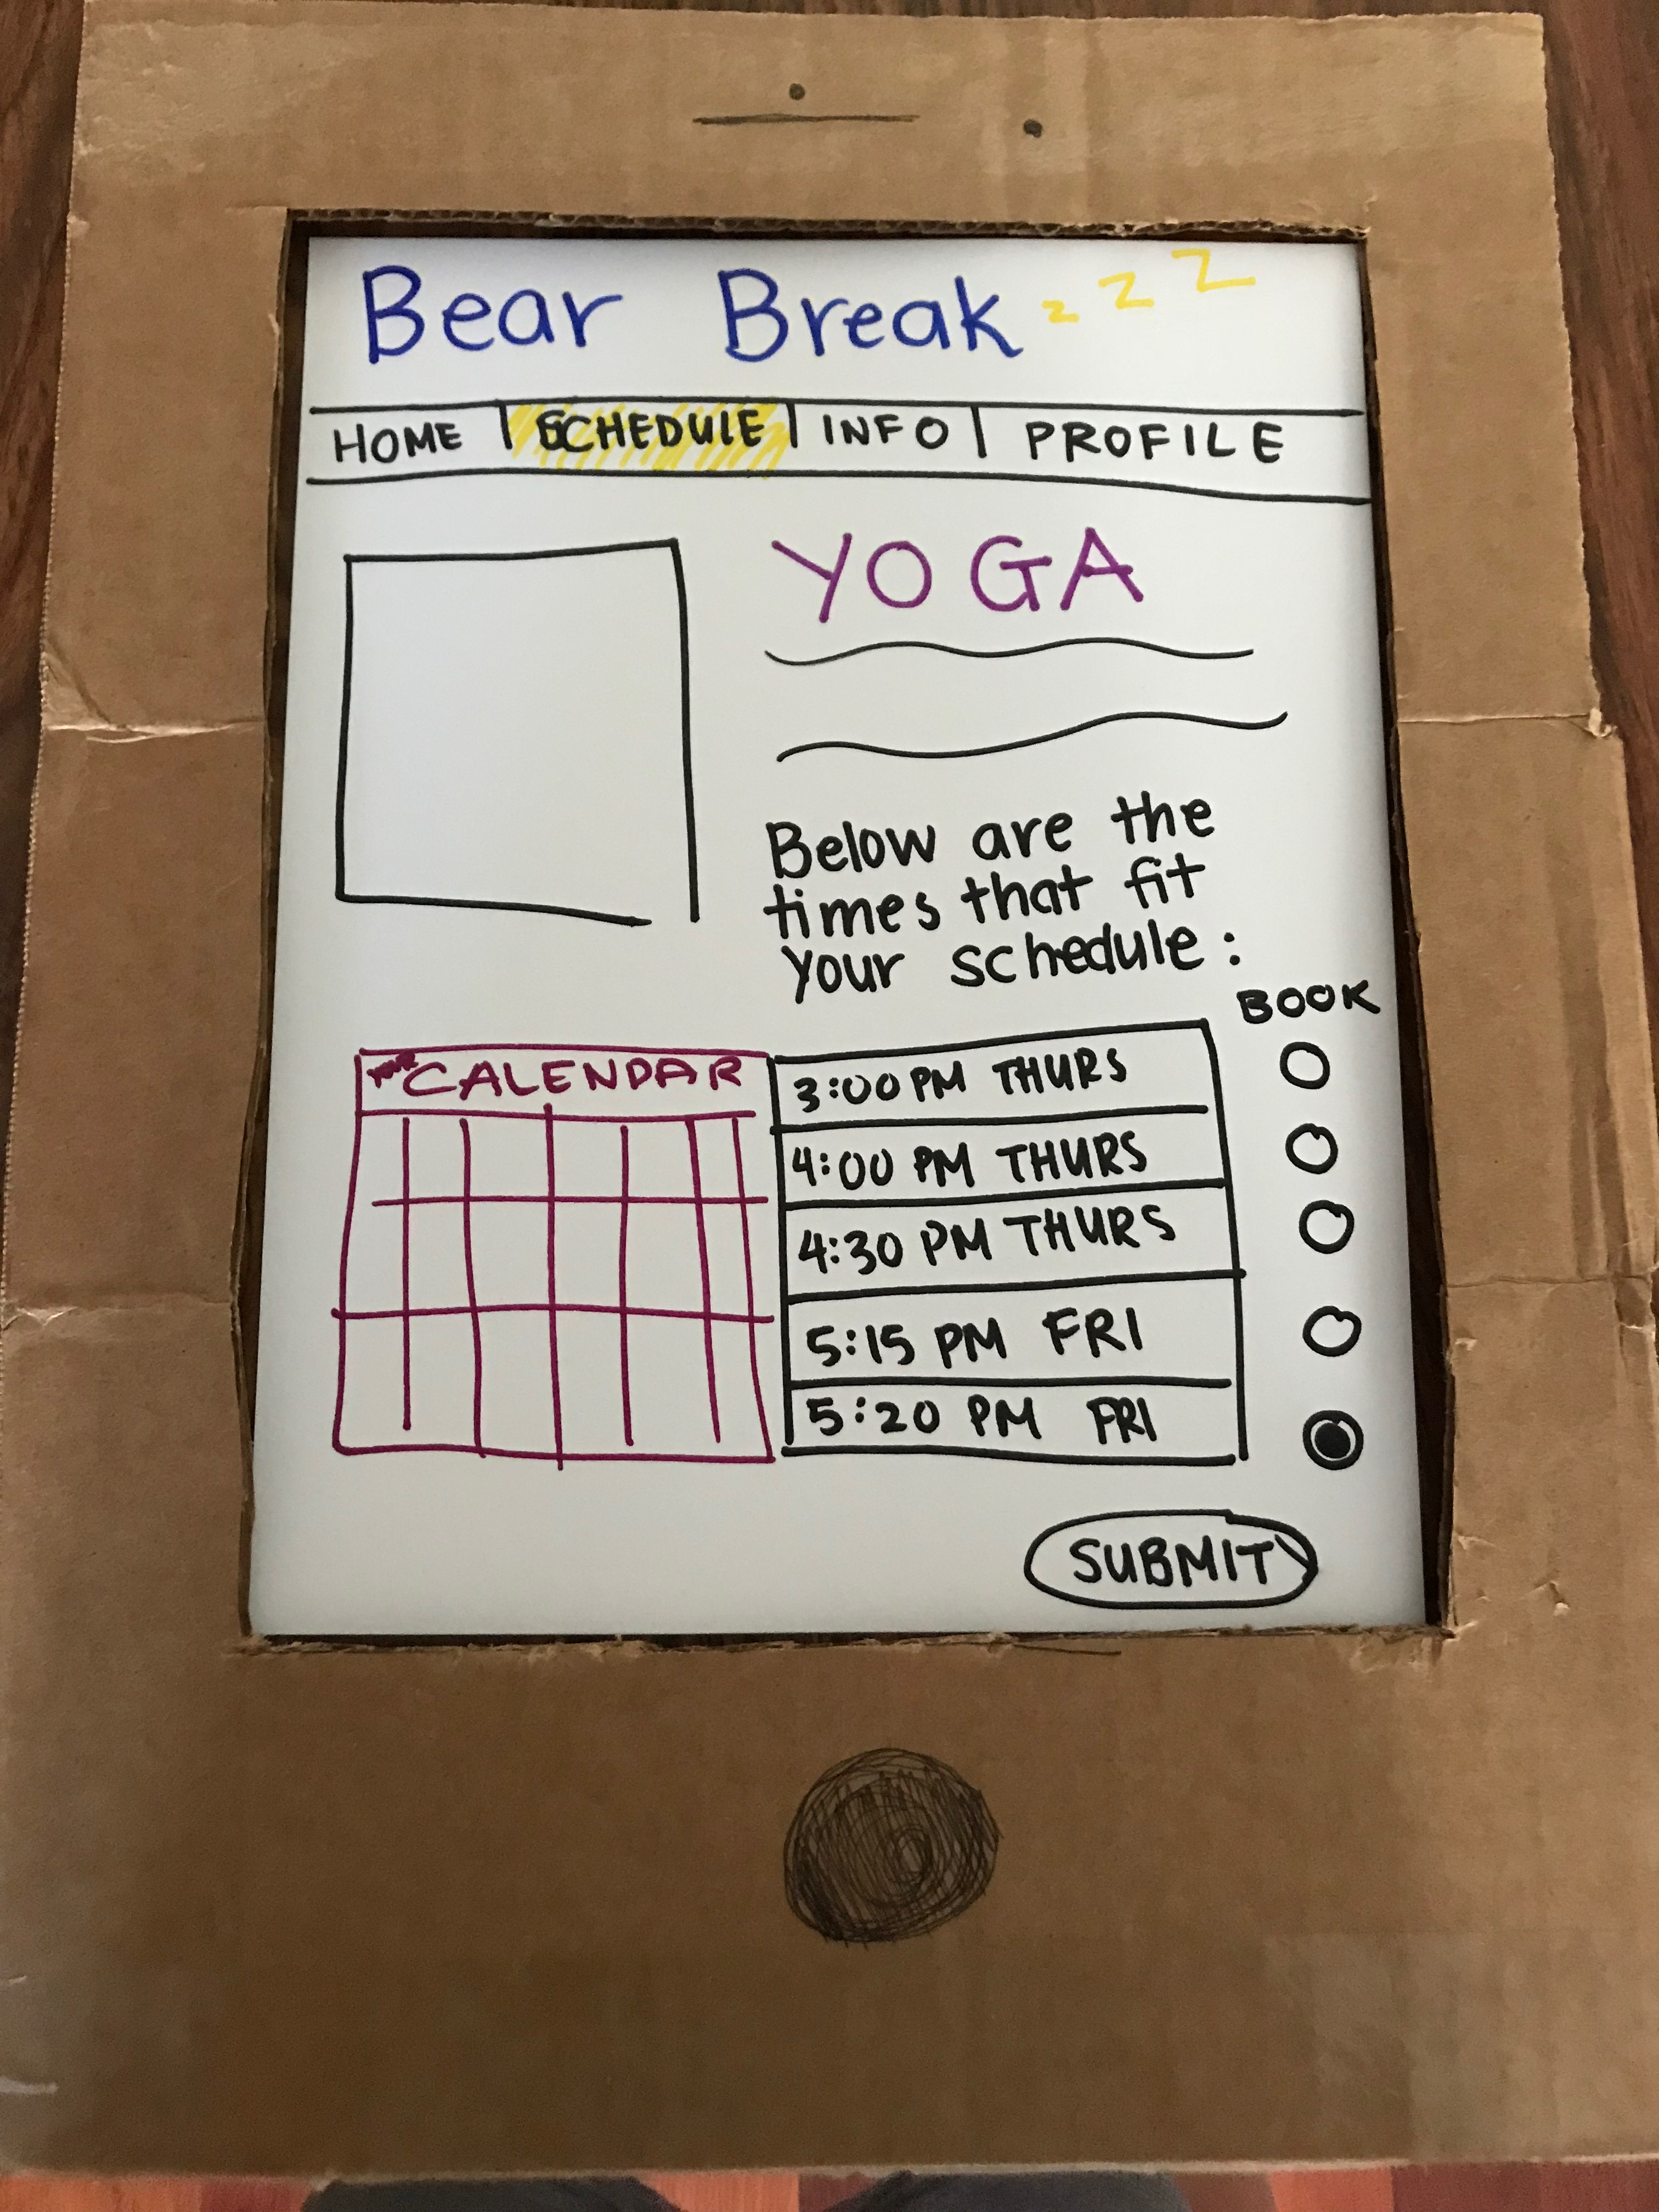 Bear Break z z z
HOME | SCHEDULE | INFO | PROFILE
YOGA
Below are the
times that fit
your schedule:
BOOK
CALENDAR
3:00 PM THURS
4:00 PM THURS
4:30 PM THURS
5:15 PM FRI
5:20 PM FRI
SUBMIT